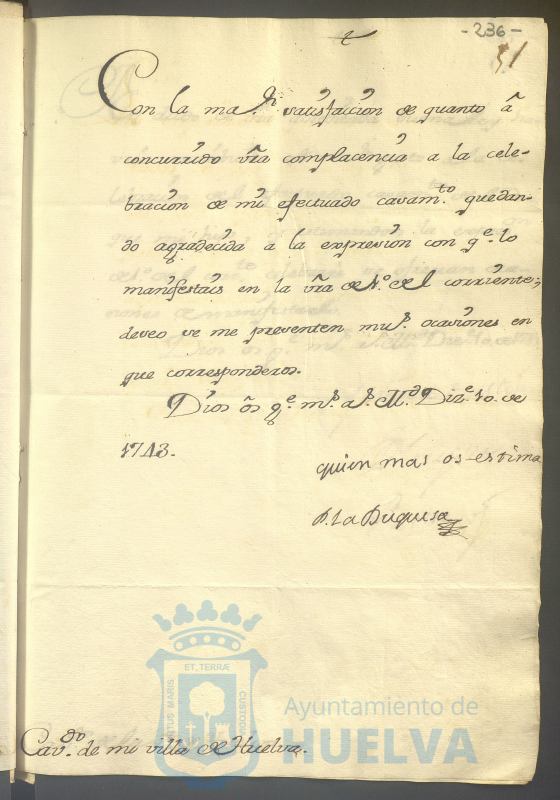 -236-
51
Con la ma.or satisfaccion de quanto â
concurrido vr̃a complacencia a la cele-
bracion de mi efectuado casam.to quedan-
do agradecida a la expresion con q.e lo
manifestais en la vr̃a de 1.o del corriente;
deseo se me presenten mu.s ocasiones en
que corresponderos.
Dios õs g.e m.s a.s M.d Diz.e 10. de
1743.
quien mas os estima
la Duquesa
ET TERRÆ
CUSTODIA
PORTUS MARIS
Ayuntamiento de
HUELVA
Cav.do de mi villa de Huelva.